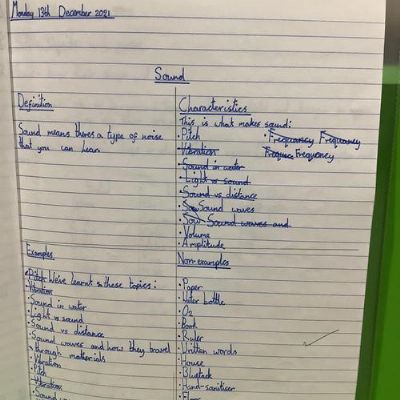 Monday 13th December 2021
Sound
Definition
Sound means theres a type of noise
that you can hear.
Characteristics
This is what makes sound:
• Pitch
• Frequancy Frequancy
Frequency
• Vibration
• Sound in water
• Light vs sound
• Sound vs distance
• Sound waves
• Sound waves and
• Volume
• Amplitude
Examples
• Pitch We've learnt these topics:
• Vibration
• Sound in water
• Light vs sound
• Sound vs distance
• Sound waves and how they travel
through materials
• Vibration
• Pitch
• Vibration
• Sound
Non-examples
• Paper
• Water bottle
• O2
• Book
• Ruler
• Written words
• House
• Blutack
• Hand-sanitiser